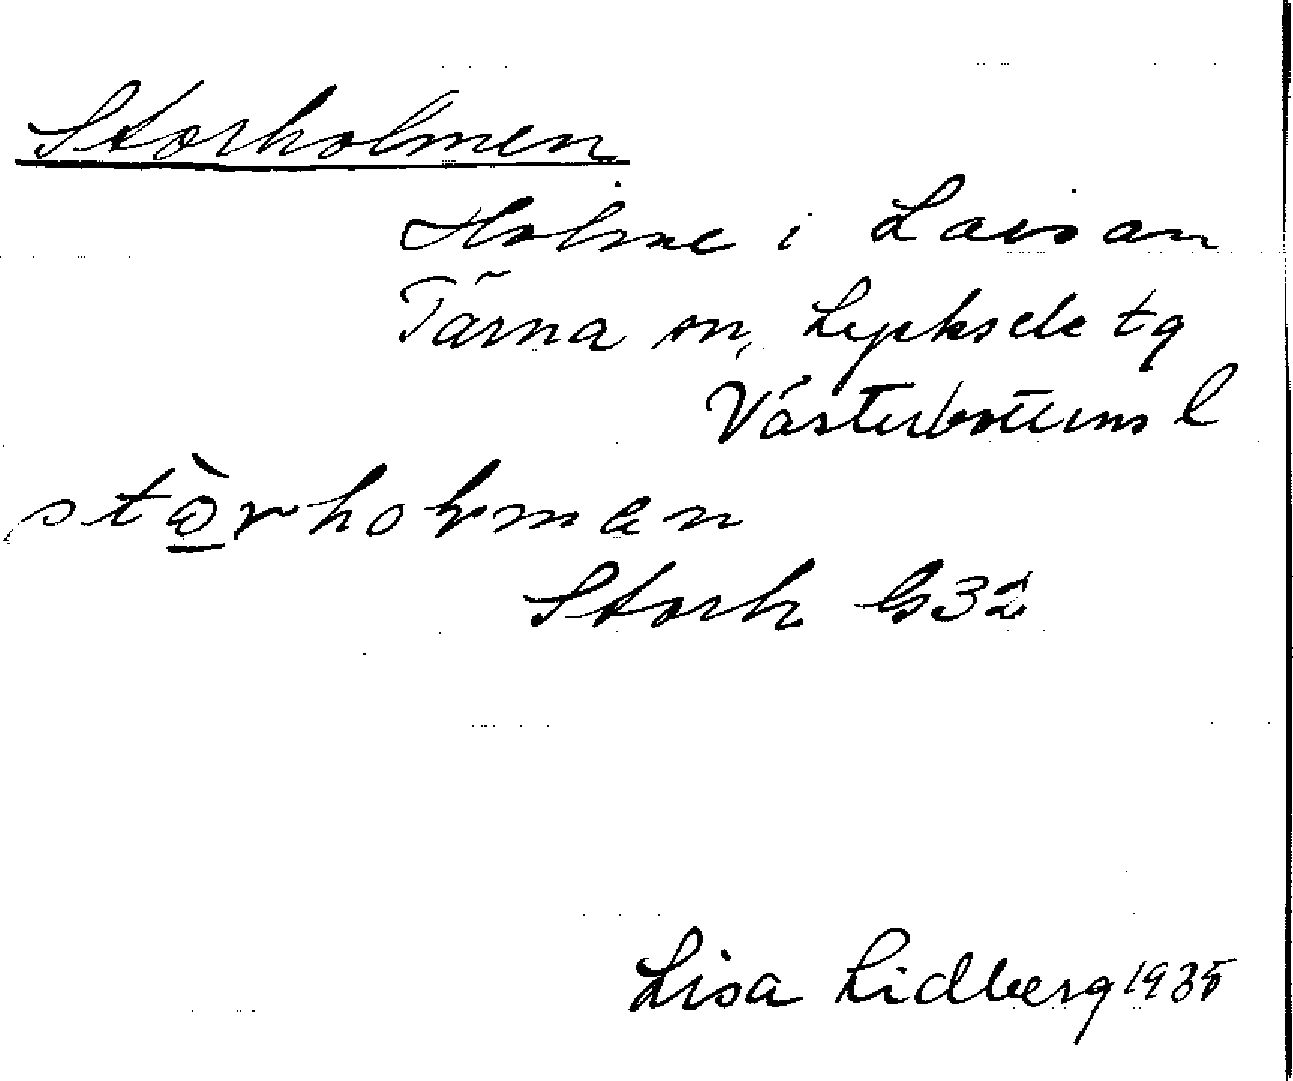 Storholmen
Holme i Laisan
Tärna sn, Lycksele tg
Västerbottens l
stò̱rholman
Storh G32
Lisa Lidberg 1935